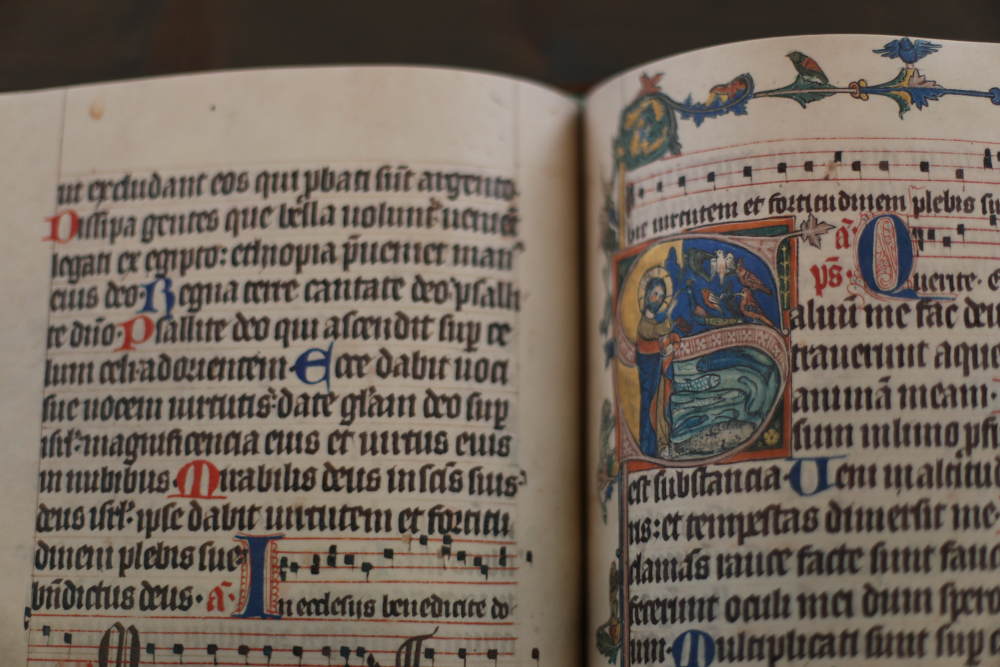 ut excludant eos qui pbati sūt argento.
Dissipa gentes que bella uolunt: uenient
legati ex egipto: ethyopia p̄ueniet man⁹
eius deo. Regna terre cantate deo: psalli
te dn̄o. Psallite deo qui ascendit sup ce
lum celi: ad orientem. Ecce dabit uoci
sue uocem uirtutis: date gl̄am deo sup
isrl̄: magnificencia eius et uirtus eius
in nubibus. Mirabilis deus in scīs suis:
deus isrl̄: ipse dabit uirtutem et fortitu
dinem plebis sue:
bn̄dictus deus. a̅. In ecclesijs benedicite do
uirtutem et fortitudinem plebis
a̅. Querite
ps̄.
Saluū me fac deus
intrauerunt aque
animā meam.
sum in limo
est substancia. Veni in altitu
nis: et tempestas dimersit me.
clamās rauce facte sunt fauc
fecerunt oculi mei dum spero
um. Multiplicati sunt sup